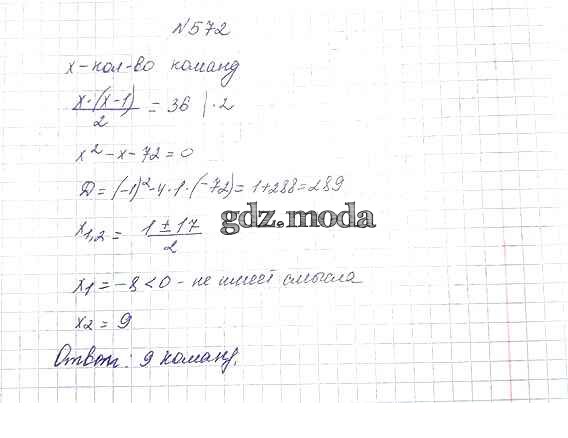 N572
x - кол-во команд
x·(x-1)/2 = 36 |·2
x² - x - 72 = 0
D = (-1)² - 4·1·(-72) = 1 + 288 = 289
gdz.moda
x1,2 = 1 ± 17 / 2
x1 = -8 < 0 - не имеет смысла
x2 = 9
Ответ: 9 команд.